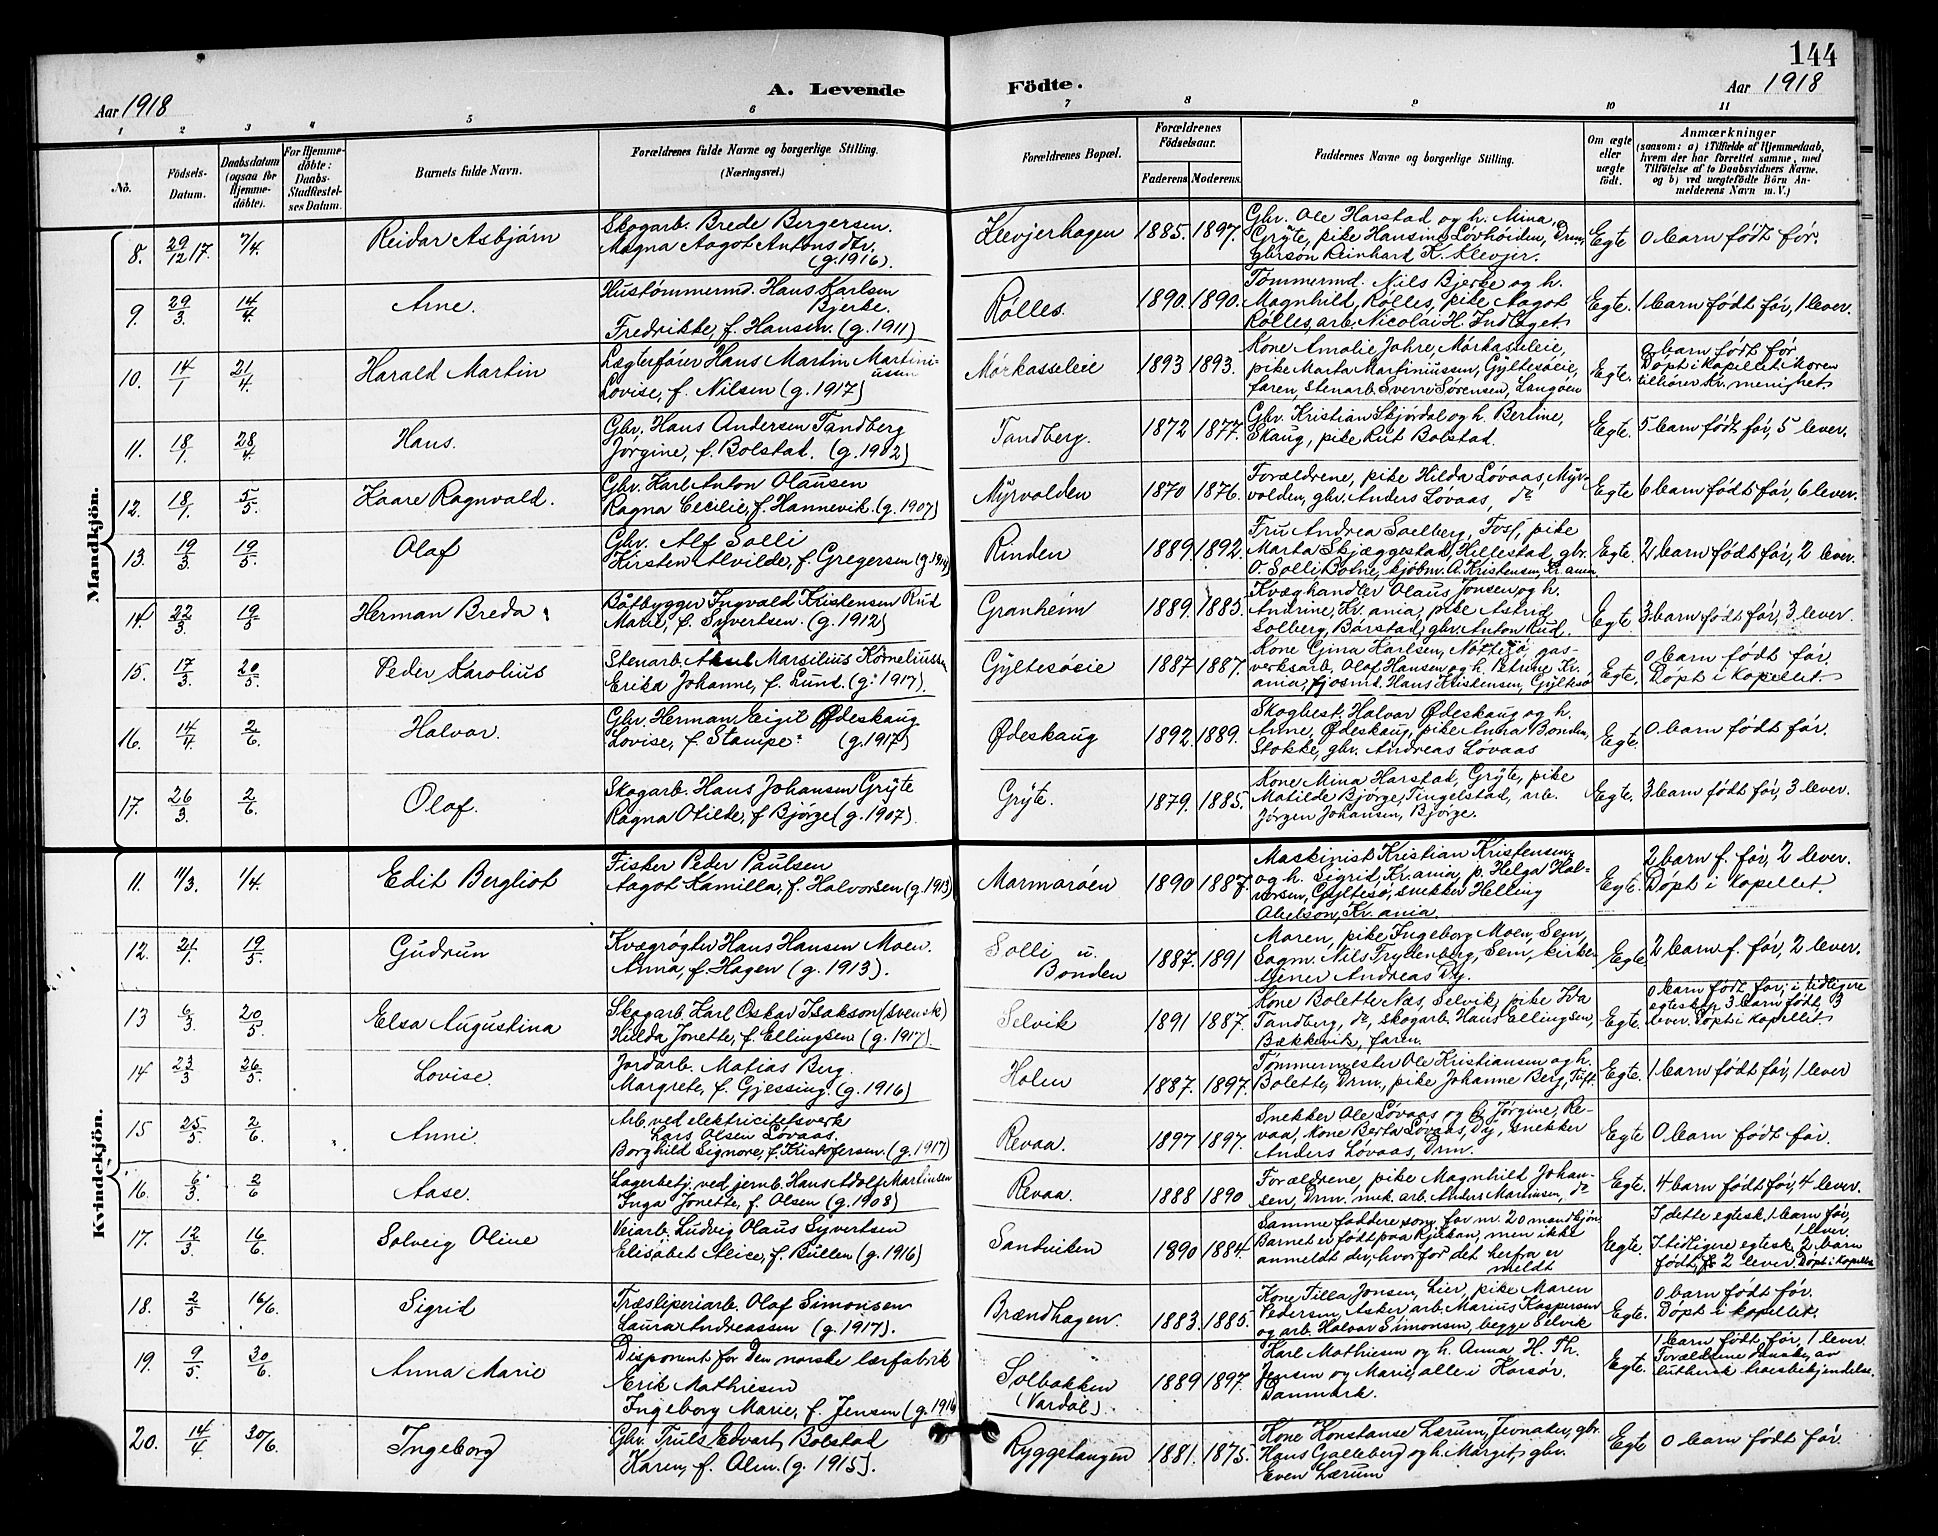 144
Aar 1918
A. Levende
Födte.
Aar 1918
1 2 3 4 5 6 7 8 9 10 11
No.
Födsels-
Datum.
Daabsdatum
(ogsaa for
Hjemme-
döbte).
For Hjemme-
döbte:
Daabs-
Stadfæstel-
ses Datum.
Barnets fulde Navn.
Forældrenes fulde Navne og borgerlige Stilling.
(Næringsvei.)
Forældrenes Bopæl.
Forældrenes
Födselsaar.
Faderens. Moderens.
Faddernes Navne og borgerlige Stilling.
Om ægte
eller
uægte
födt.
Anmærkninger
(saasom: a) i Tilfælde af Hjemmedaab,
hvem der har forrettet samme, med
Tilföielse af to Daabsvidners Navne,
og b) ved uægtefödte Börn An-
melderens Navn m. V.)
Mandkjön.
8. 29/12 17. 7/4. Reidar Asbjørn
Skogarb. Brede Bergersen.
Magna Aagot Antonsdtr.
(g. 1916).
Klevjerhagen 1885. 1897.
Gbr. Ole Harstad og h. Mina,
Grÿte, pike Hansine Løvhøiden, Drm,
gbrsøn Reinhard K. Klevjer.
Egte 0 barn født før.
9. 29/3 14/4 Arne.
Hustømmermd. Hans Karlsen
Bjerke.
Fredrikke, f. Hansen. (g. 1911)
Rølles. 1890. 1890.
Tømmermd. Nils Bjerke og h.
Magnhild, Rølles, pike Aagot
Rølles, arb. Nicolai H. Indlaget
Egte. 1 barn født før, 1 lever.
10. 14/1 21/4 Harald Martin
Lægterfører Hans Martin Martini-
ussen
Lovise, f. Nilsen (g. 1917)
Mørkasseleie 1893 1893.
Kone Amalie Jahre, Mørkasseleie,
pike Marta Martiniussen, Gÿltesøeie,
faren, stenarb. Sverre Sørensen, Langøen
Egte. 0 barn født før
Døpt i kapellet. Moren
tilhører Kr. menighet
11. 18/1 28/4 Hans.
Gbr. Hans Andersen Tandberg
Jørgine, f. Bolstad. (g. 1902)
Tandberg. 1872 1877.
Gbr. Kristian Skjørdal og h. Bertine,
Skaug, pike Rut Bolstad.
Egte. 5 barn født før, 5 lever.
12. 18/1. 5/5. Kaare Ragnvald.
Gbr. Karl Anton Olausen
Ragna Cecilie, f. Hannevik. (g. 1907)
Mÿrvolden 1870 1876.
Forældrene, pike Hilda Løvaas, Mÿr-
volden, gbr. Anders Løvaas, do
Egte 6 barn født før, 6 lever.
13. 19/3 19/5. Olaf
Gbr. Alf Solli
Kirsten Alvilde, f. Gregersen (g.
Rinden 1889. 1892.
Fru Andrea Solberg, Foss, pike
Marta Skjæggestad, Hillestad, gbr.
O. Solli Botne, kjøbm. A. Kristensen, Kr.ania.
Egte. 2 barn født før, 2 lever.
14. 22/3 19/5 Herman Breda
Båtbygger Ingvald Kristensen Rud
f. Syvertsen. (g. 1912)
Granheim 1889. 1885.
Kvæghandler Olaus Jonsen og h.
Andrine, Kr.ania, pike Astrid
Solberg, Børstad, gbr. Anton Rud.
Egte. 3 barn født før, 3 lever.
15. 17/3. 20/5. Peder Karolius
Stenarb. Aksel Marsilius Korneliussen
Erika Johanne, f. Lund. (g. 1917).
Gÿltesøeie 1887 1887.
Kone Gina Karlsen, Nøtterø, gas-
verksarb. Olaf Hansen og h. Petrine Kr.
ania, fjosmd. Hans Kristensen, Gÿltesø
Egte. 0 barn født før.
Døpt i kapellet
16. 14/4. 2/6. Halvor.
Gbr. Herman Eigil Ødeskaug
Lovise, f. Stampe. (g. 1917)
Ødeskaug 1892. 1889.
Skogbest. Halvor Ødeskaug og h.
Anne, Ødeskaug, pike Anna Bonden,
Stokke, gbr. Andreas Løvaas
Egte. 0 barn født før.
17. 26/3. 2/6 Olaf.
Skogarb. Hans Johansen Grÿte
Ragna Otilde, f. Bjørge (g. 1907).
Grÿte. 1879. 1885.
Kone Mina Harstad, Grÿte, pike
Matilde Bjørge, Tingelstad, arb.
Jørgen Johansen, Bjørge.
Egte. 3 barn født før, 3 lever.
Kvindekjön.
11. 11/3. 1/4. Edit Bergliot
Fisker Peder Paulsen
Aagot Kamilla, f. Halvorsen (g. 1913)
Marmorøen 1890 1887.
Maskinist Kristian Kristensen
og h. Sigrid, Kr.ania, p. Helga Hal-
vorsen, Gÿltesø, snekker Helling
Abelson, Kr.ania
Egte. 2 barn f. før, 2 lever.
Døpt i kapellet
12. 21/1. 19/5. Gudrun
Kvægrøgter Hans Hansen Moen.
Anna, f. Hagen (g. 1913).
Solli u.
Bonden 1887. 1891
Moren, pike Ingeborg Moen, Sem,
Sagm. Nils Tryllenberg, Sem, kirke-
tjener Andreas Dy.
Egte 2 barn f. før, 2 lever.
13 6/3. 20/5. Elsa Augustina
Skogarb. Karl Oskar Isakson (svensk)
Hilda Jonette, f. Ellingsen (g. 1917)
Selvik 1891 1887.
Kone Bolette Næs, Selvik, pike Ida
Tandberg, do, skogarb. Hans Ellingsen,
Bækkevik, faren.
Egte. 0 barn født før; i tidligere
egteskap 3 barn født, 3
lever. Døpt i kapellet
14 23/3 26/5. Lovise.
Jordarb. Matias Berg.
Margrete, f. Gjessing. (g. 1916)
Holm 1887. 1897.
Tømmermester Ole Kristiansen og h.
Bolette, Drm, pike Johanne Berg, Tuft.
Egte. 1 barn født før, 1 lever
15 25/5. 2/6. Anni.
Arb. ved elektricitetsverk
Lars Olsen Løvaas.
Borghild Signore, f. Kristofersen. (g. 1917)
Revaa. 1897 1897.
Snekker Ole Løvaas og h. Jørgine, Re-
vaa, kone Berta Løvaas, Dy, snekker
Anders Løvaas, Drm.
Egte 0 barn født før.
16. 6/3. 2/6 Aase.
Lagerbetj. ved jernb. Hans Adolf Martinsen
Inga Jonette, f. Olsen (g. 1908)
Revaa. 1888 1890
Forældrene, pike Magnhild Johan-
sen, Drm. mek. arb. Anders Martinsen, do
Egte. 4 barn født før, 4 lever.
17. 12/3. 16/6. Solveig Oline
Veiarb. Ludvig Olaus Syvertsen
Elisabet Alice, f. Büllen (g. 1916)
Sandviken 1890 1884.
Samme faddere som for nr. 20 mandkjøn.
Barnet er født paa Rjukan, men ikke
anmeldt der, hvorfor det herfra er
meldt
Egte. I dette egtesk. 1 barn før,
1 lever.
I tidligere egtesk. 2 barn
født, 2 lever. Døpt i kapellet
18. 2/5 16/6. Sigrid
Træsliperiarb. Olaf Simonsen
Laura Andreassen (g. 1917).
Brændhagen. 1883. 1885.
Kone Tilla Jonsen, Lier, pike Maren
Pedersen, Asker arb. Marius Kaspersen
og arb. Halvor Simonsen, begge Selvik
Egte. 0 barn født før.
Døpt i kapellet.
19. 9/5. 30/6. Anna Marie
Disponent for Den norske lærfabrik
Erik Mathiesen
Ingeborg Marie, f. Jensen (g. 1916
Solbakken
(Vardal) 1889 1897.
Karl Mathiesen og h. Anna H. Th.
Jensen og Marie, alle i Korsør,
Danmark.
Egte. 1 barn født før, 1 lever.
Forældrene danske, av
luthersk troesbekjendelse.
20. 14/4 30/6. Ingeborg
Gbr. Truls Edvart Bolstad
Karen, f. Olm. (g. 1915).
Ryggetangen 1881. 1875.
Kone Konstanse Lærum, Jevnaker, gbr.
Hans Galleberg og h. Margit, gbr.
Even Lærum
Egte 0 barn født før.